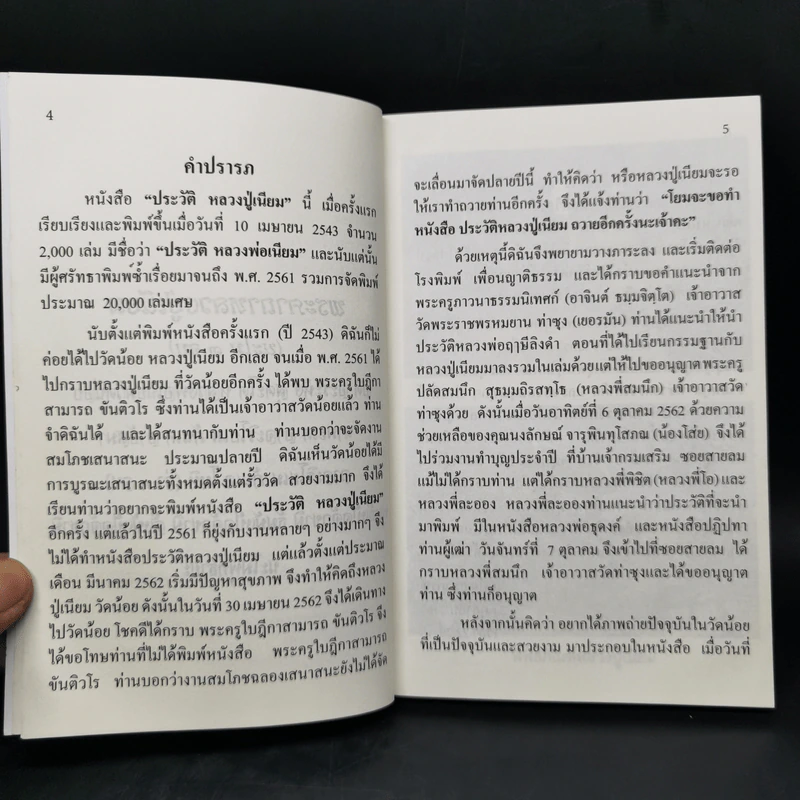 4
คำปรารภ
หนังสือ “ประวัติ หลวงปู่เนียม” นี้ เมื่อครั้งแรก
เรียบเรียงและพิมพ์ขึ้นเมื่อวันที่ 10 เมษายน 2543 จำนวน
2,000 เล่ม มีชื่อว่า “ประวัติ หลวงพ่อเนียม” และนับแต่นั้น
มีผู้ศรัทธาพิมพ์ซ้ำเรื่อยมาจนถึง พ.ศ. 2561 รวมการจัดพิมพ์
ประมาณ 20,000 เล่มเศษ
นับตั้งแต่พิมพ์หนังสือครั้งแรก (ปี 2543) ดิฉันก็ไม่
ค่อยได้ไปวัดน้อย หลวงปู่เนียม อีกเลย จนเมื่อ พ.ศ. 2561 ได้
ไปกราบหลวงปู่เนียม ที่วัดน้อยอีกครั้ง ได้พบ พระครูใบฎีกา
สามารถ ขันติวโร ซึ่งท่านได้เป็นเจ้าอาวาสวัดน้อยแล้ว ท่าน
จำดิฉันได้ และได้สนทนากับท่าน ท่านบอกว่าจะจัดงาน
สมโภชเสนาสนะ ประมาณปลายปี ดิฉันเห็นวัดน้อยได้มี
การบูรณะเสนาสนะทั้งหมดตั้งแต่รั้ววัด สวยงามมาก จึงได้
เรียนท่านว่าอยากจะพิมพ์หนังสือ “ประวัติ หลวงปู่เนียม”
อีกครั้ง แต่แล้วในปี 2561 ก็ยุ่งกับงานหลายๆ อย่างมากๆ จึง
ไม่ได้ทำหนังสือประวัติหลวงปู่เนียม แต่แล้วตั้งแต่ประมาณ
เดือน มีนาคม 2562 เริ่มมีปัญหาสุขภาพ จึงทำให้คิดถึงหลวง
ปู่เนียม วัดน้อย ดังนั้นในวันที่ 30 เมษายน 2562 จึงได้เดินทาง
ไปวัดน้อย โชคดีได้กราบ พระครูใบฎีกาสามารถ ขันติวโร จึง
ได้ขอโทษท่านที่ไม่ได้พิมพ์หนังสือ พระครูใบฎีกาสามารถ
ขันติวโร ท่านบอกว่างานสมโภชฉลองเสนาสนะยังไม่ได้จัด
5
จะเลื่อนมาจัดปลายปีนี้ ทำให้คิดว่า หรือหลวงปู่เนียมจะรอ
ให้เราทำถวายท่านอีกครั้ง จึงได้แจ้งท่านว่า “โยมจะขอทำ
หนังสือ ประวัติหลวงปู่เนียม ถวายอีกครั้งนะเจ้าคะ”
ด้วยเหตุนี้ดิฉันจึงพยายามวางภาระลง และเริ่มติดต่อ
โรงพิมพ์ เพื่อนญาติธรรม และได้กราบขอคำแนะนำจาก
พระครูภาวนาธรรมนิเทศก์ (อาจินต์ ธมฺมจิตฺโต) เจ้าอาวาส
วัดพระราชพรหมยาน ท่าซุง (เยอรมัน) ท่านได้แนะนำให้นำ
ประวัติหลวงพ่อฤๅษีลิงดำ ตอนที่ได้ไปเรียนกรรมฐานกับ
หลวงปู่เนียมมาลงรวมในเล่มด้วยแต่ให้ไปขออนุญาต พระครู
ปลัดสมนึก สุธมฺมถิรสทฺโธ (หลวงพี่สมนึก) เจ้าอาวาสวัด
ท่าซุงด้วย ดังนั้นเมื่อวันอาทิตย์ที่ 6 ตุลาคม 2562 ด้วยความ
ช่วยเหลือของคุณนงลักษณ์ จารุพินทุโสภณ (น้องโส่ย) จึงได้
ไปร่วมงานทำบุญประจำปี ที่บ้านเจ้ากรมเสริม ซอยสายลม
แม้ไม่ได้กราบท่าน แต่ได้กราบหลวงพี่พิชิต (หลวงพี่โอ) และ
หลวงพี่ละออง หลวงพี่ละอองท่านแนะนำว่าประวัติที่จะนำ
มาพิมพ์ มีในหนังสือหลวงพ่อธุดงค์ และหนังสือปฏิปทา
ท่านผู้เฒ่า วันจันทร์ที่ 7 ตุลาคม จึงเข้าไปที่ซอยสายลม ได้
กราบหลวงพี่สมนึก เจ้าอาวาสวัดท่าซุงและได้ขออนุญาต
ท่าน ซึ่งท่านก็อนุญาต
หลังจากนั้นคิดว่า อยากได้ภาพถ่ายปัจจุบันในวัดน้อย
ที่เป็นปัจจุบันและสวยงาม มาประกอบในหนังสือ เมื่อวันที่